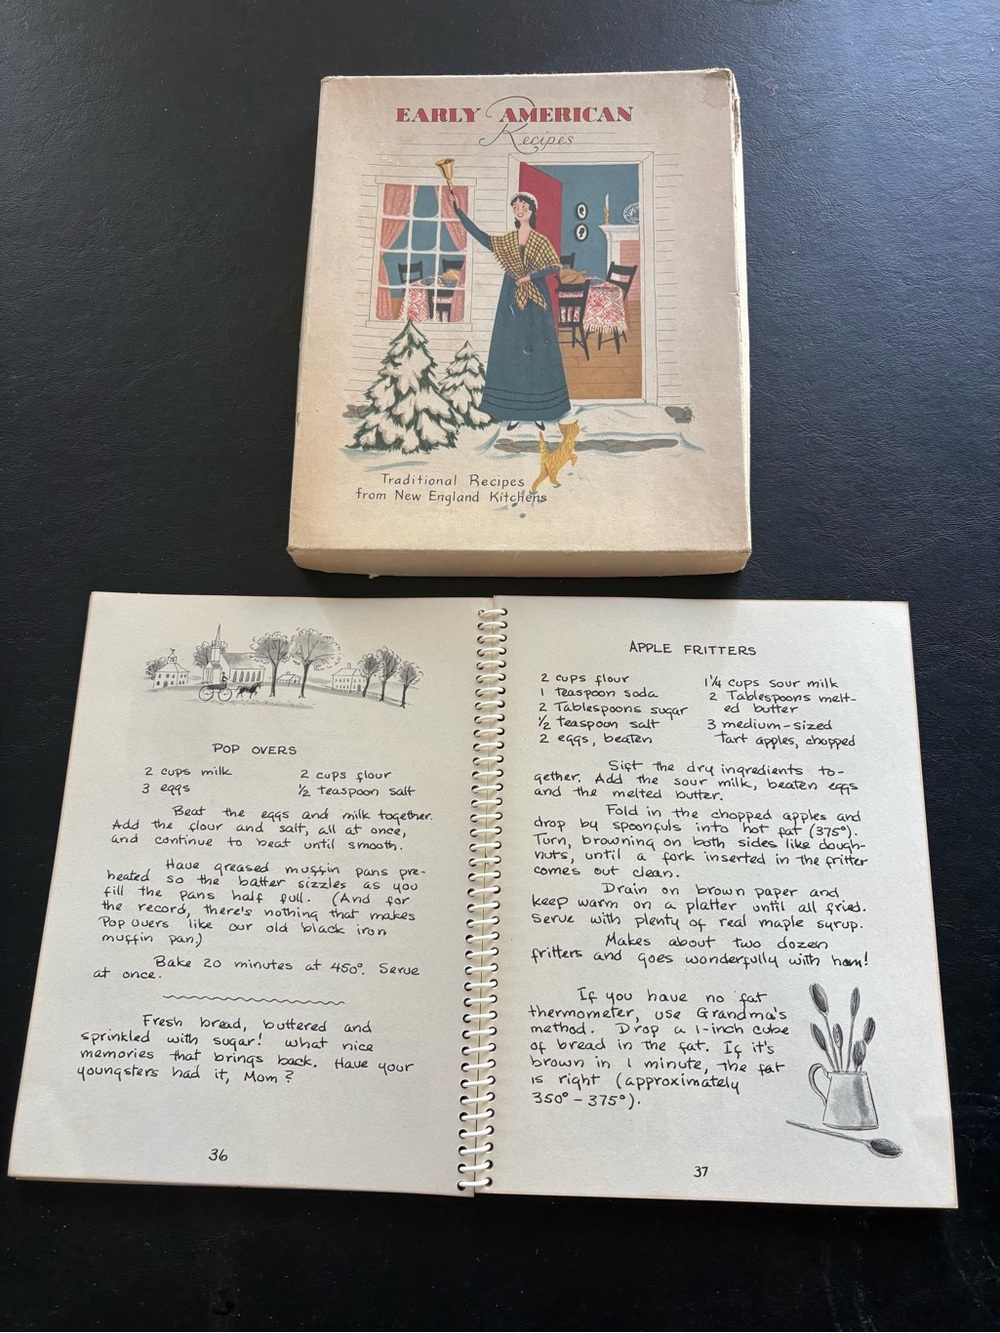 EARLY AMERICAN
Recipes
Traditional Recipes
from New England Kitchens
POP OVERS
2 cups milk
3 eggs
2 cups flour
½ teaspoon salt
Beat the eggs and milk together.
Add the flour and salt, all at once,
and continue to beat until smooth.
Have greased muffin pans pre-
heated so the batter sizzles as you
fill the pans half full. (And for
the record, there's nothing that makes
Pop overs like our old black iron
muffin pan.)
Bake 20 minutes at 450°. Serve
at once.
Fresh bread, buttered and
sprinkled with sugar! What nice
memories that brings back. Have your
youngsters had it, Mom?
36
APPLE FRITTERS
2 cups flour
1 teaspoon soda
2 Tablespoons sugar
½ teaspoon salt
2 eggs, beaten
1¼ cups sour milk
2 Tablespoons melt-
ed butter
3 medium-sized
tart apples, chopped
Sift the dry ingredients to-
gether. Add the sour milk, beaten eggs
and the melted butter.
Fold in the chopped apples and
drop by spoonfuls into hot fat (375°).
Turn, browning on both sides like dough-
nuts, until a fork inserted in the fritter
comes out clean.
Drain on brown paper and
keep warm on a platter until all fried.
Serve with plenty of real maple syrup.
Makes about two dozen
fritters and goes wonderfully with ham!
If you have no fat
thermometer, use Grandma's
method. Drop a 1-inch cube
of bread in the fat. If it's
brown in 1 minute, the fat
is right (approximately
350° - 375°).
37